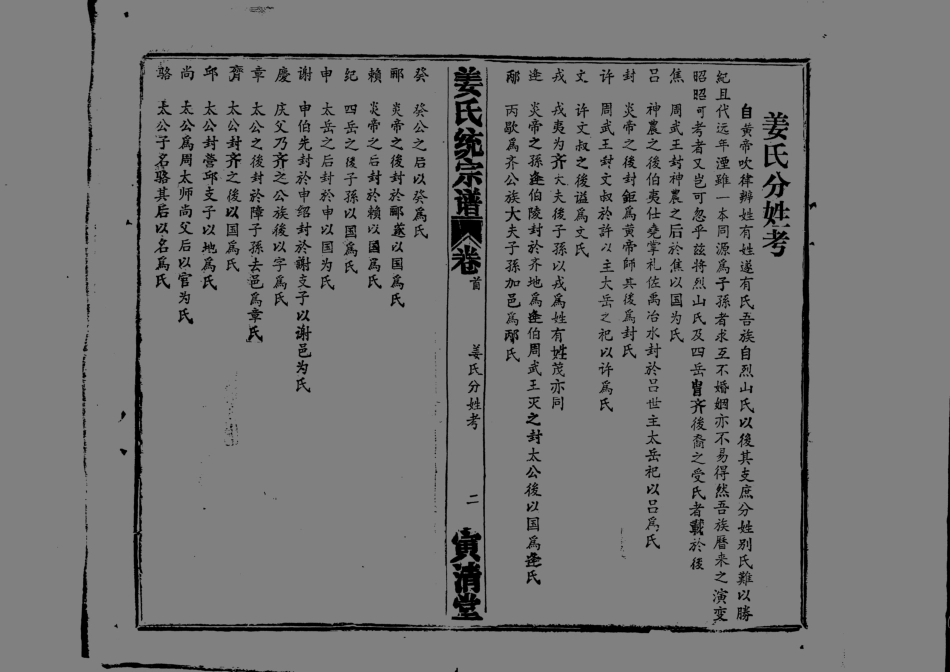 姜氏分姓考
自黄帝吹律辩姓有姓遂有氏吾族自烈山氏以後其支庶分姓别氏難以勝
紀且代远年湮虽一本同源爲子孫者求互不婚姻亦不易得然吾族曆来之演变
昭昭可考者又岂可忽乎兹将烈山氏及四岳曺齐後裔之受氏者载於後
焦 周武王封神農之后於焦以国为氏
吕 神農之後伯夷仕堯掌礼佐禹治水封於吕世主太岳祀以吕爲氏
封 炎帝之後封鉅爲黄帝師其後爲封氏
许 周武王封文叔於許以主大岳之祀以许爲氏
文 许文叔之後谥爲文氏
戎 戎夷为齐大夫後子孫以戎爲姓有姓茂亦同
逄 炎帝之孫逄伯陵封於齐地爲逄伯周武王灭之封太公後以国爲逄氏
邴 丙歇爲齐公族大夫子孫加邑爲邴氏
姜氏统宗谱 卷首 姜氏分姓考 二 寅清堂
癸 癸公之后以癸爲氏
郦 炎帝之後封於郦遂以国爲氏
賴 炎帝之后封於賴以国爲氏
纪 四岳之後子孫以国爲氏
申 太岳之后封於申以国为氏
谢 申伯先封於申绍封於謝支子以谢邑为氏
慶 庆父乃齐之公族後以字爲氏
章 太公之後封於障子孫去邑爲章氏
齊 太公封齐之後以国爲氏
邱 太公封營邱支子以地爲氏
尚 太公爲周太师尚父后以官为氏
骆 太公子名骆其后以名爲氏